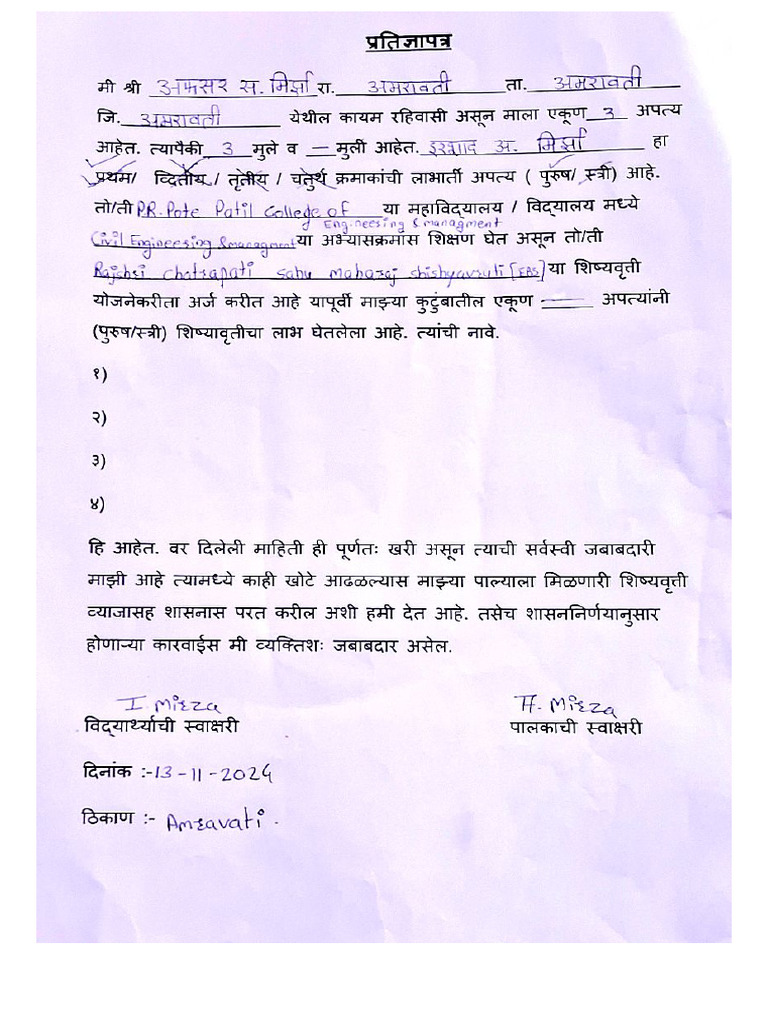 प्रतिज्ञापत्र
मी श्री अफसर स. मिर्झा रा. अमरावती ता. अमरावती
जि. अमरावती येथील कायम रहिवासी असून माला एकूण 3 अपत्य
आहेत. त्यापैकी 3 मुले व — मुली आहेत. इरशाद अ. मिर्झा हा
प्रथम/ व्दितीय / तृतीय / चतुर्थ क्रमाकांची लाभार्ती अपत्य ( पुरुष/ स्त्री) आहे.
तो/ती P.R. Pote Patil College of या महाविद्यालय / विद्यालय मध्ये
Engineering & managment
Civil Engineering & managment या अभ्यासक्रमास शिक्षण घेत असून तो/ती
Rajshri chatrapati sahu maharaj shishyavruti [EBS] या शिष्यवृत्ती
योजनेकरीता अर्ज करीत आहे यापूर्वी माझ्या कुटुंबातील एकूण —— अपत्यांनी
(पुरुष/स्त्री) शिष्यावृतीचा लाभ घेतलेला आहे. त्यांची नावे.
१)
२)
३)
४)
हि आहेत. वर दिलेली माहिती ही पूर्णतः खरी असून त्याची सर्वस्वी जबाबदारी
माझी आहे त्यामध्ये काही खोटे आढळल्यास माझ्या पाल्याला मिळणारी शिष्यवृत्ती
व्याजासह शासनास परत करील अशी हमी देत आहे. तसेच शासननिर्णयानुसार
होणाऱ्या कारवाईस मी व्यक्तिशः जबाबदार असेल.
I. Mirza A. Mirza
विद्यार्थ्याची स्वाक्षरी पालकाची स्वाक्षरी
दिनांक :- 13-11-2024
ठिकाण :- Amravati.